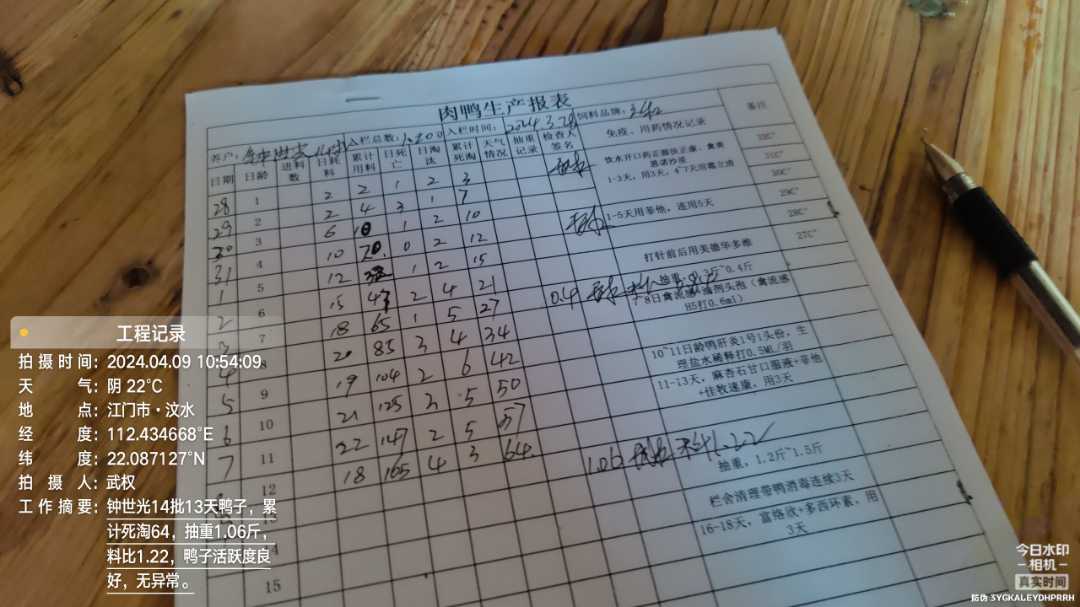 肉鸭生产报表
养户: 入栏总数: 入栏时间: 2024.3.28 饲料品牌:
日期 日龄 进料数 日耗料 累计用料 日死亡 日淘汰 累计死淘 天气情况 抽重记录 检查人签名 免疫、用药情况记录 备注
28 1 2 2 1 2 3
29 2 2 4 3 1 7
30 3 6 10 1 2 10
31 4 10 20 0 2 12
1 5 12 32 1 2 15
2 6 15 47 2 4 21
3 18 65 1 5 27
4 20 85 3 4 34
5 9 19 104 2 6 42
6 10 21 125 3 5 50
7 11 22 147 2 5 57
12 18 165 4 3 64
13
14
15
0.4
1.06 1.22
饮水开口药正服扶正康、禽爽
1-3天，用3天，4~7天用霉立清
1-5天用菲他，连用5天
打针前后用美德华多维
抽重，0.3斤~0.4斤
H5打0.6ml）
10~11日龄鸭肝炎1号1头份，生
理盐水稀释打0.5ML/羽
11-13天，麻杏石甘口服液+菲他
+住牧速康，用3天
抽重，1.2斤~1.5斤
栏舍清理带鸭消毒连续3天
16-18天，富络欣+多西环素，用
3天
33C°
31C°
30C°
29C°
28C°
27C°
工程记录
拍摄时间：2024.04.09 10:54:09
天气：阴 22℃
地点：江门市·汶水
经度：112.434668°E
纬度：22.087127°N
拍摄人：武权
工作摘要：钟世光14批13天鸭子，累
计死淘64，抽重1.06斤，
料比1.22，鸭子活跃度良
好，无异常。
今日水印
-相机-
真实时间
防伪 3YGKALEYDHPRRH